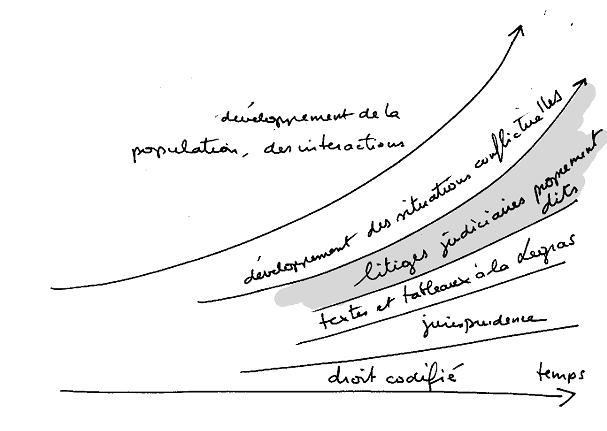 développement de la
population, des interactions
développement des situations conflictuelles
litiges judiciaires proprement
dits
textes et tableaux à la Legras
jurisprudence
droit codifié
temps